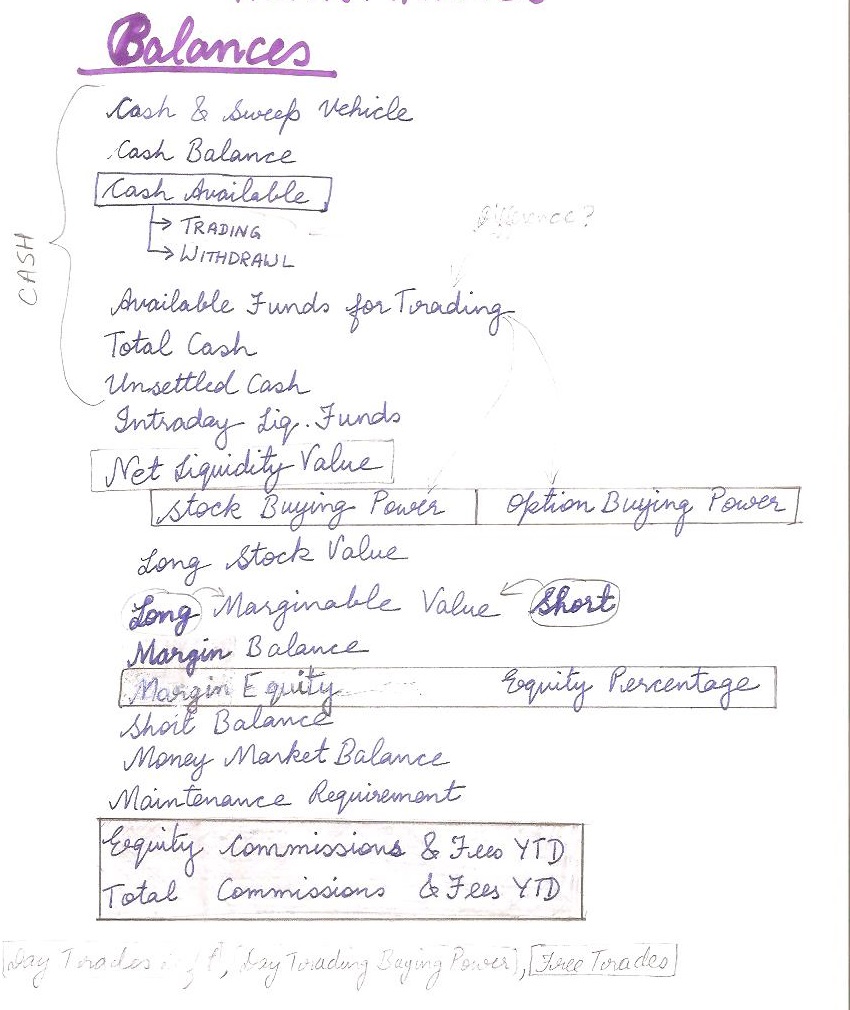 Balances
Cash & Sweep Vehicle
Cash Balance
Cash Available
→ TRADING
→ WITHDRAWL
CASH
Difference?
Available Funds for Trading
Total Cash
Unsettled Cash
Intraday Liq. Funds
Net Liquidity Value
Stock Buying Power | Option Buying Power
Long Stock Value
Long Marginable Value Short
Margin Balance
Margin Equity Equity Percentage
Short Balance
Money Market Balance
Maintenance Requirement
Equity Commissions & Fees YTD
Total Commissions & Fees YTD
Day Trades , Day Trading Buying Power, Free Trades